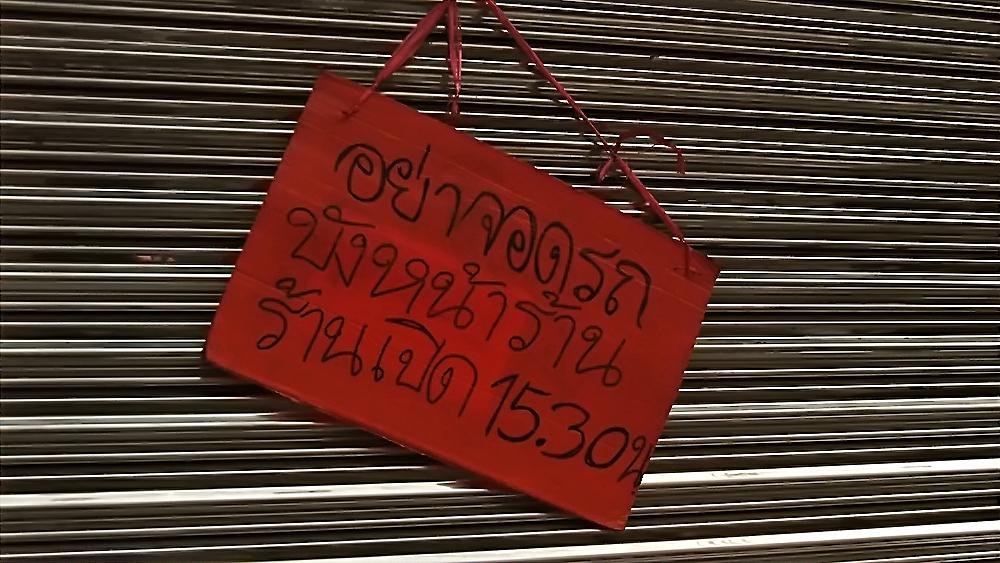 อย่าจอดรถ
บังหน้าร้าน
ร้านเปิด 15.30น